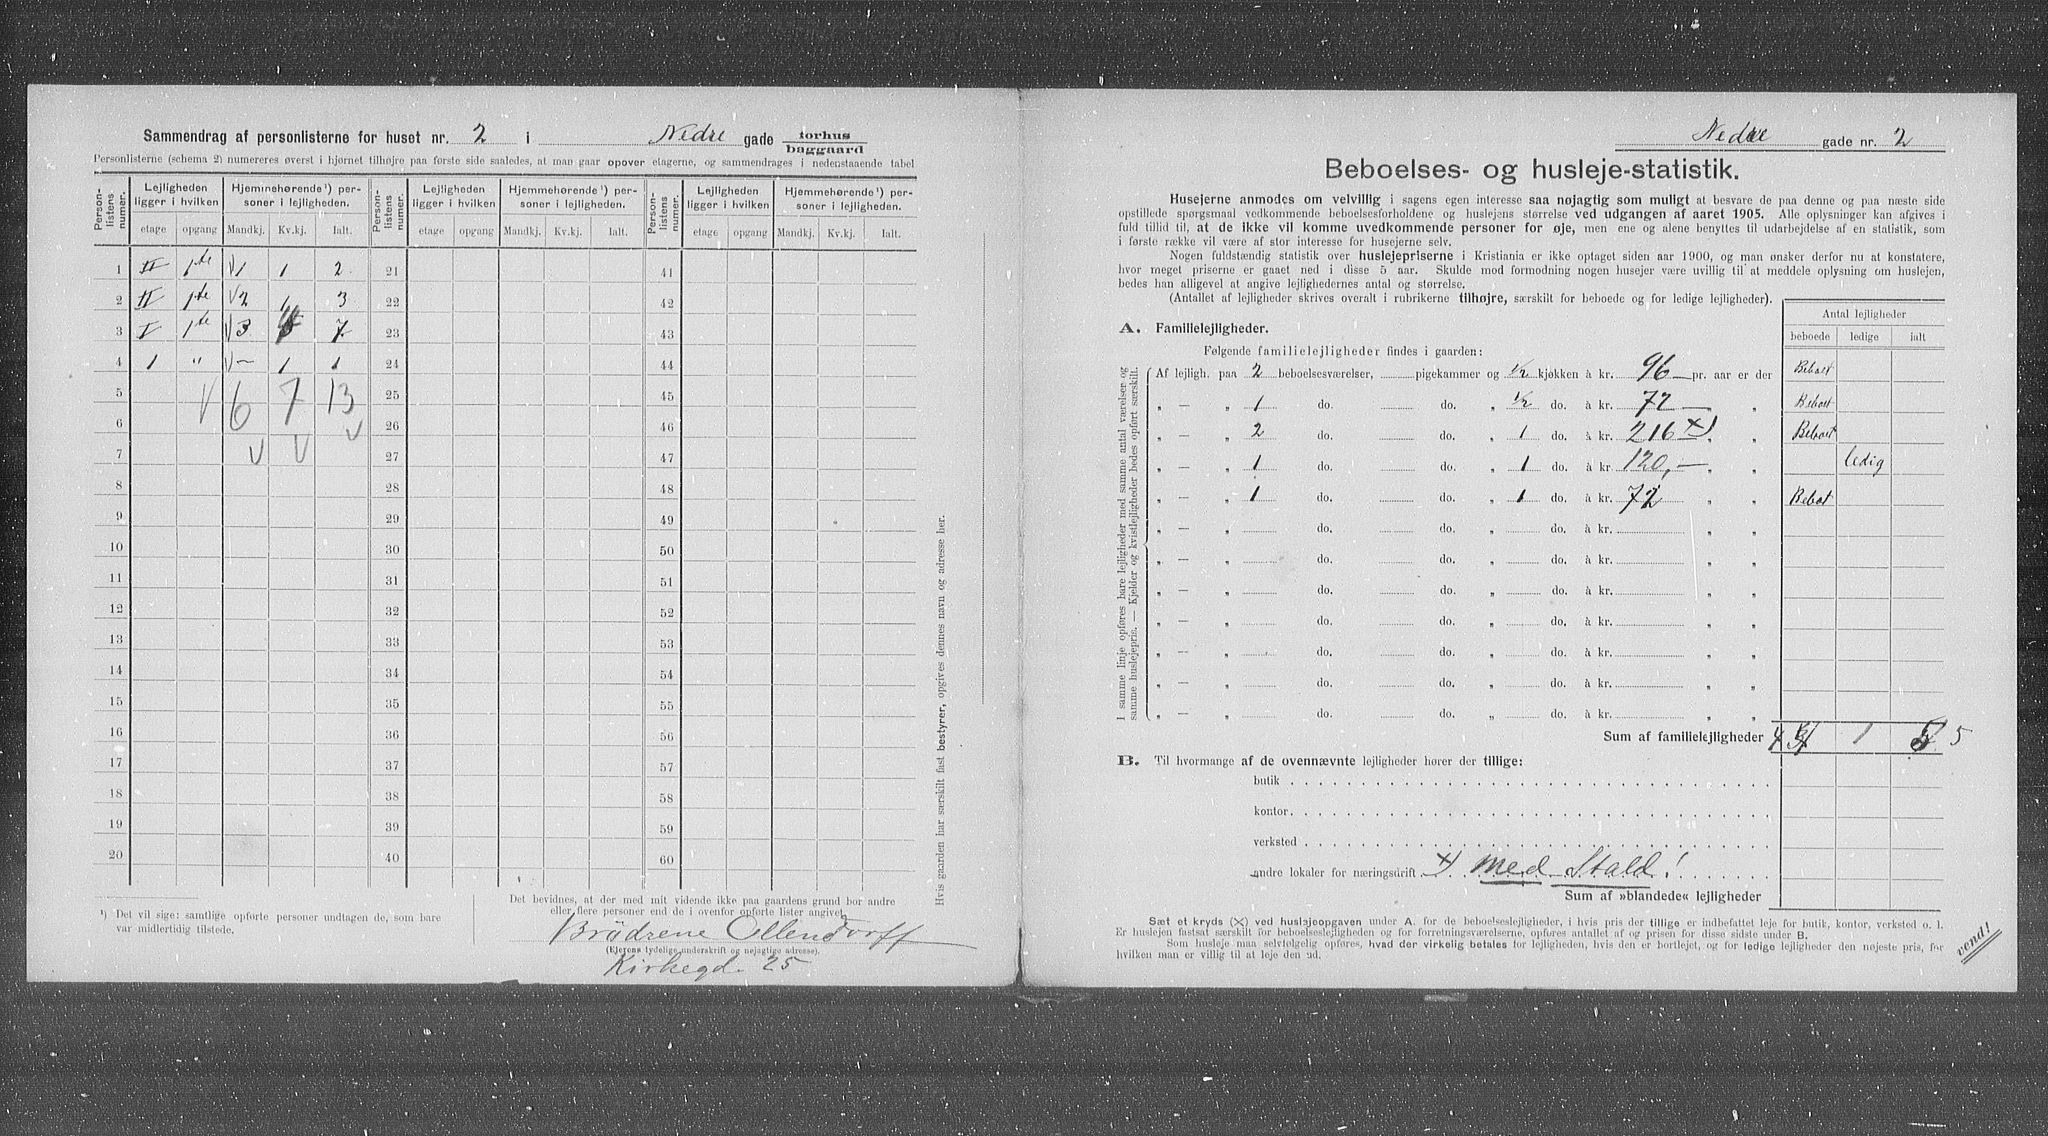 Sammendrag af personlisterne for huset nr. 2 i Nedre gade forhus
baggaard
Personlisterne (schema 2) numereres øverst i hjørnet tilhøjre paa første side saaledes, at man gaar opover etagerne, og sammendrages i nedenstaaende tabel
Person-listens numer. Lejligheden ligger i hvilken Hjemmehørende¹) per-soner i lejligheden. Person-listens numer. Lejligheden ligger i hvilken Hjemmehørende¹) per-soner i lejligheden. Person-listens numer. Lejligheden ligger i hvilken Hjemmehørende¹) per-soner i lejligheden.
etage opgang Mandkj. Kv.kj. Ialt. etage opgang Mandkj. Kv.kj. Ialt. etage opgang Mandkj. Kv.kj. Ialt.
1 II 1ste V 1 1 2 21 41
2 II 1ste V 2 1 3 22 42
3 I 1ste V 3 7 23 43
4 1 " V – 1 1 24 44
5 V 6 7 13 25 45
6 V 26 46
7 V V 27 47
8 28 48
9 29 49
10 30 50
11 31 51
12 32 52
13 33 53
14 34 54
15 35 55
16 36 56
17 37 57
18 38 58
19 39 59
20 40 60
Hvis gaarden har særskilt fast bestyrer, opgives dennes navn og adresse her.
¹) Det vil sige: samtlige opførte personer undtagen de, som bare
var midlertidig tilstede.
Det bevidnes, at der med mit vidende ikke paa gaardens grund bor andre
eller flere personer end de i ovenfor opførte lister angivet
Brödrene Ollendorff
(Ejerens tydelige underskrift og nøjagtige adresse).
Kirkegd. 25
Nedre gade nr. 2
Beboelses- og husleje-statistik.
Husejerne anmodes om velvillig i sagens egen interesse saa nøjagtig som muligt at besvare de paa denne og paa næste side
opstillede spørgsmaal vedkommende beboelsesforholdene og huslejens størrelse ved udgangen af aaret 1905. Alle oplysninger kan afgives i
fuld tillid til, at de ikke vil komme uvedkommende personer for øje, men ene og alene benyttes til udarbejdelse af en statistik, som
i første række vil være af stor interesse for husejerne selv.
Nogen fuldstændig statistik over huslejepriserne i Kristiania er ikke optaget siden aar 1900, og man ønsker derfor nu at konstatere,
hvor meget priserne er gaaet ned i disse 5 aar. Skulde mod formodning nogen husejer være uvillig til at meddele oplysning om huslejen,
bedes han alligevel at angive lejlighedernes antal og størrelse.
(Antallet af lejligheder skrives overalt i rubrikerne tilhøjre, særskilt for beboede og for ledige lejligheder).
Antal lejligheder
beboede ledige ialt
A. Familielejligheder.
Følgende familielejligheder findes i gaarden:
I samme linje opføres bare lejligheder med samme antal værelser og
samme huslejepris. — Kjelder og kvistlejligheder bedes opført særskilt.
Af lejligh. paa 2 beboelsesværelser, pigekammer og ½ kjøkken à kr. 96 — pr. aar er der Beboet
„ — „ 1 do. do. „ ½ do. à kr. 72 — „ „ Beboet
„ — „ 2 do. do. „ 1 do. à kr. 216 x) „ „ Beboet
„ — „ 1 do. do. „ 1 do. à kr 120,— „ „ ledig
„ — „ 1 do. do. „ 1 do. à kr. 72 „ „ Beboet
„ — „ do. do. „ do. à kr. „ „
„ — „ do. do. „ do. à kr. „ „
„ — „ do. do. „ do. à kr. „ „
„ — „ do. do. „ do. à kr. „ „
„ — „ do. do. „ do. à kr. „ „
„ — „ do. do. „ do. à kr. „ „
„ — „ do. do. „ do. à kr. „ „
Sum af familielejligheder 4 1 5
B. Til hvormange af de ovennævnte lejligheder hører der tillige:
butik
kontor
verksted
andre lokaler for næringsdrift x) med Stald!
Sum af »blandede« lejligheder
Sæt et kryds (X) ved huslejeopgaven under A. for de beboelseslejligheder, i hvis pris der tillige er indbefattet leje for butik, kontor, verksted o. l.
Er huslejen fastsat særskilt for beboelseslejligheden og for forretningsværelserne, opføres antallet af og prisen for disse sidste under B.
Som husleje maa selvfølgelig opføres, hvad der virkelig betales for lejligheden, hvis den er bortlejet, og for ledige lejligheder den nøjeste pris, for
hvilken man er villig til at leje den ud.
vend!